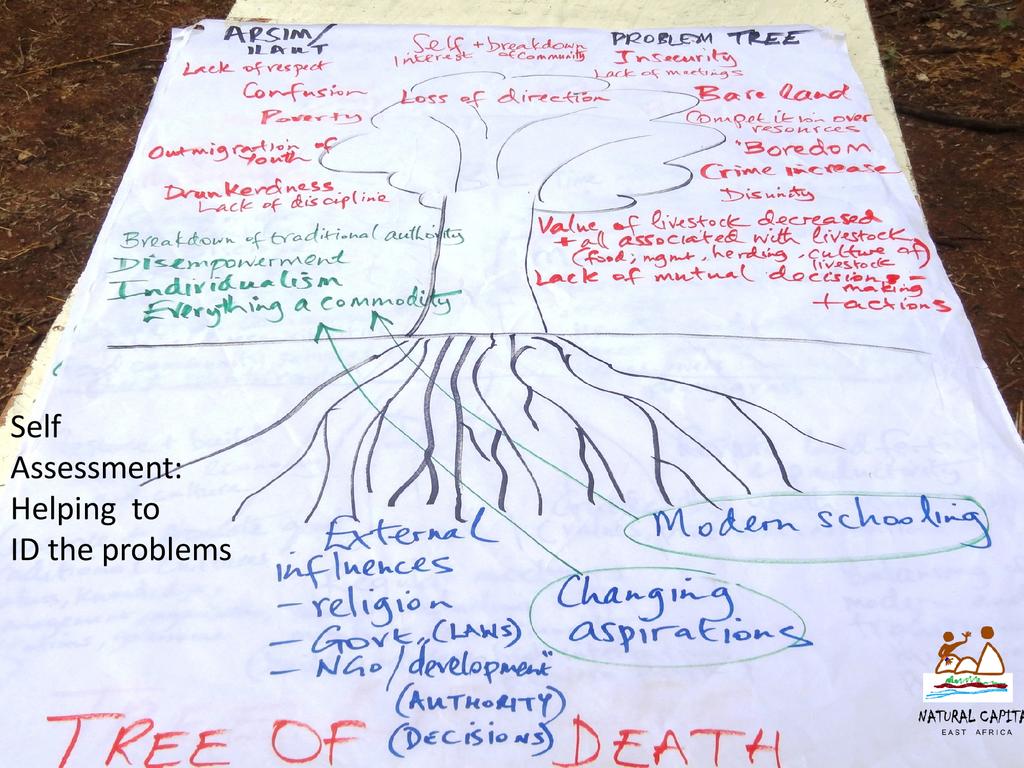 ARSIM/
ILAKT
PROBLEM TREE
Self + breakdown
Interest of community
Insecurity
Lack of meetings
Lack of respect
Confusion
Loss of direction
Bare land
Poverty
Competition over
resources
Outmigration of
Youth
"Boredom
Crime increase
Drunkerdness
Lack of discipline
Disunity
Breakdown of traditional authority
Disempowerment
Individualism
Everything a commodity
Value of livestock decreased
+ all associated with livestock
(food, mgmt, herding, culture of)
livestock
Lack of mutual decision-
making
+ actions
Self
Assessment:
Helping to
ID the problems
External
influences
- religion
- Govt. (LAWS)
- NGO/"development"
(AUTHORITY)
(DECISIONS)
Modern schooling
Changing
aspirations
TREE OF DEATH
NATURAL CAPITA
EAST AFRICA